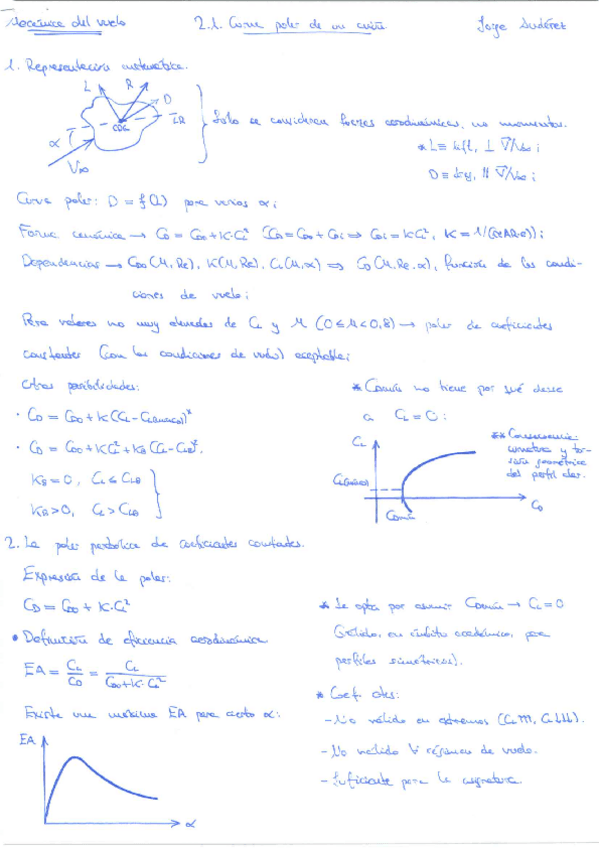 Mecánica del vuelo
2.1. Curva polar de un avión
Jorge
1. Representación matemática.
L R D
CDG
α
V∞
Sólo se consideran fuerzas aerodinámicas, no momentos.
* L ≡ lift, ⊥ V∞;
D ≡ drag, ∥ V∞;
Curva polar: D = f(L) para varios α;
Forma canónica → CD = CD0 + K·CL² (CD = CD0 + CDi ⇒ CDi = KCL², K = 1/(πARe));
Dependencias → CD0(M, Re), K(M, Re), CL(M, α) ⇒ CD(M, Re, α), función de las condi-
ciones de vuelo;
Para valores no muy elevados de CL y M (0 ≤ M < 0,8) → polar de coeficientes
constantes (con las condiciones de vuelo) aceptable;
Otras posibilidades:
· CD = CD0 + K(CL - CL(CDmín))²
· CD = CD0 + KCL² + KB(CL - CLB)²,
KB = 0, CL ≤ CLB
KB > 0, CL > CLB
* CDmín no tiene por qué darse
a CL = 0:
CL
CL(CDmín)
CDmín
CD
** Consecuencia
curvatura y tor-
sión geométrica
del perfil alar.
2. La polar parabólica de coeficientes constantes.
Expresión de la polar:
CD = CD0 + K·CL²
• Definición de eficiencia aerodinámica
EA = CL/CD = CL/(CD0 + K·CL²)
Existe una máxima EA para cierto α:
EA
α
* Se opta por asumir CDmín → CL = 0
(válido, en ámbito académico, para
perfiles simétricos).
* Coef. ctes:
- No válido en extremos (CL ↑↑, CL ↓↓).
- No válido ∀ régimen de vuelo.
- Suficiente para la asignatura.